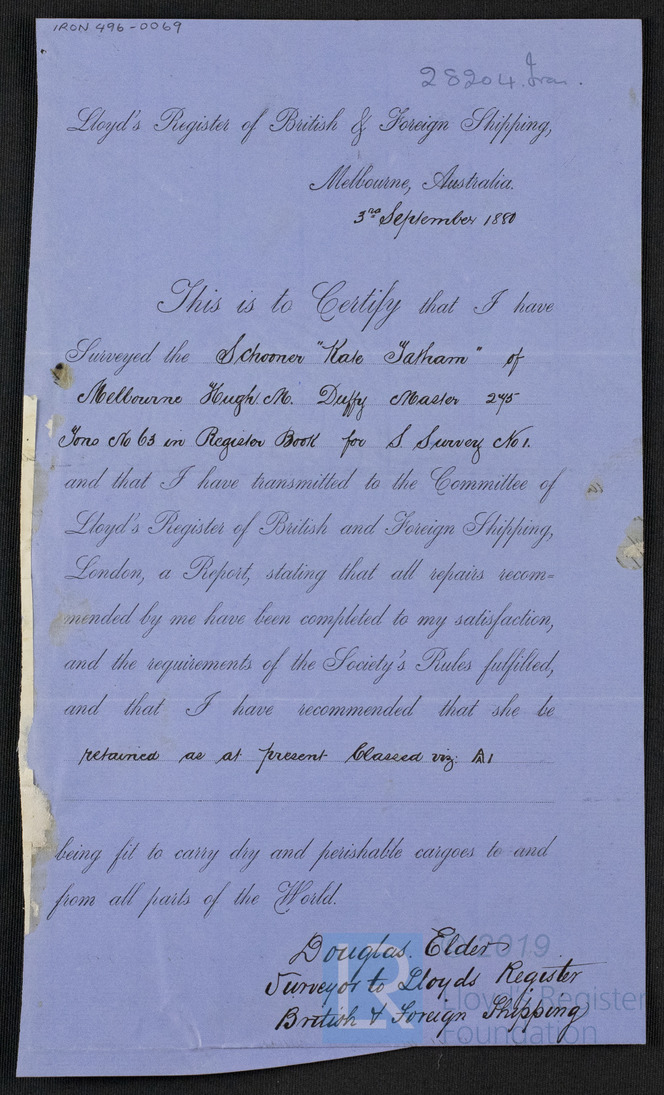 IRON 496-0069
28204 Iron.
Lloyd's Register of British & Foreign Shipping,
Melbourne, Australia.
3rd September 1880
This is to Certify that I have
Surveyed the Schooner "Kate Tatham" of
Melbourne Hugh M. Duffy Master 245
Tons No 63 in Register Book for S Survey No 1.
and that I have transmitted to the Committee of
Lloyd's Register of British and Foreign Shipping,
London, a Report, stating that all repairs recom=
mended by me have been completed to my satisfaction,
and the requirements of the Society's Rules fulfilled,
and that I have recommended that she be
retained as at present Classed viz: A1
being fit to carry dry and perishable cargoes to and
from all parts of the World.
Douglas. Elder
Surveyor to Lloyds Register
British & Foreign Shipping
LR
2019
Lloyd's Register
Foundation